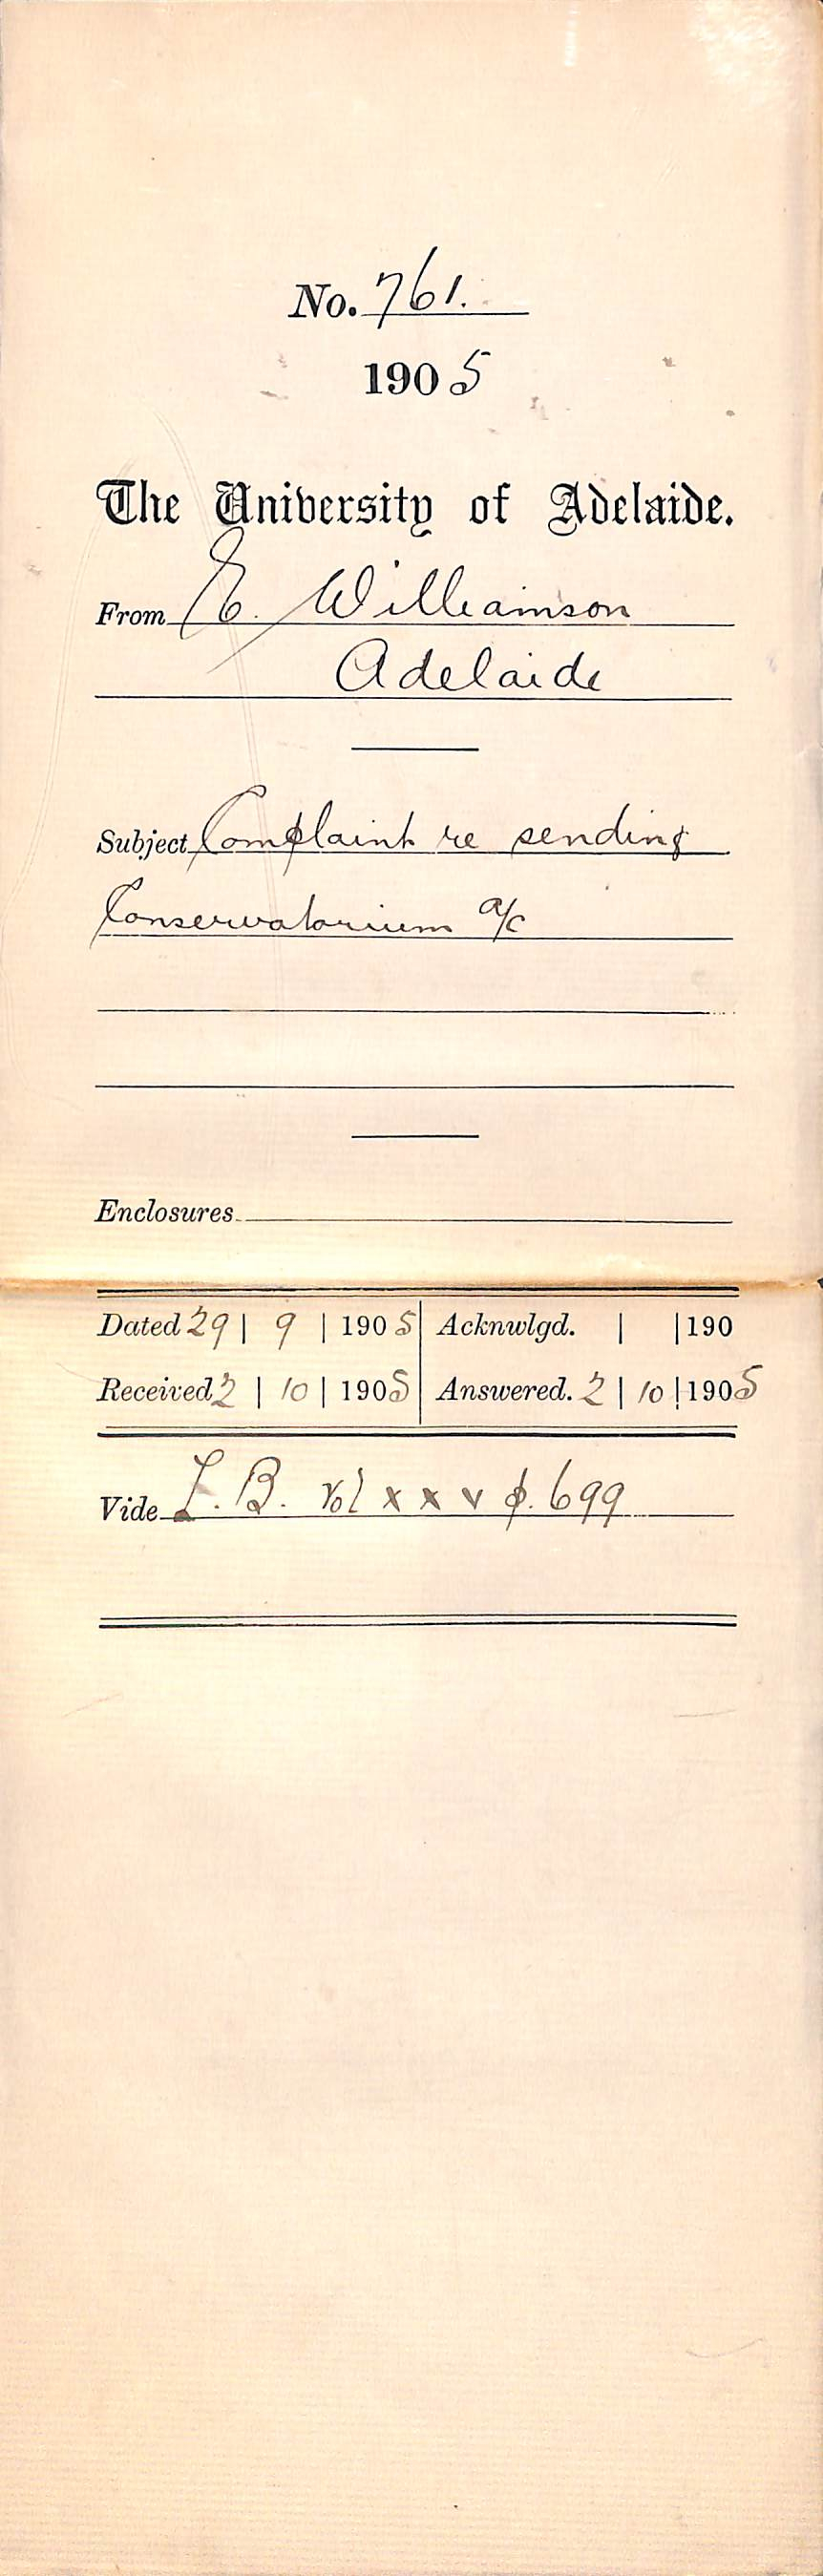 No. 761.
1905
The University of Adelaide.
From E. Williamson
Adelaide
Subject Complaint re sending
Conservatorium a/c
Enclosures
Dated 29 | 9 | 1905 Acknwlgd. | | 190
Received 2 | 10 | 1905 Answered. 2 | 10 | 1905
Vide L. B. Vol x x v p. 699